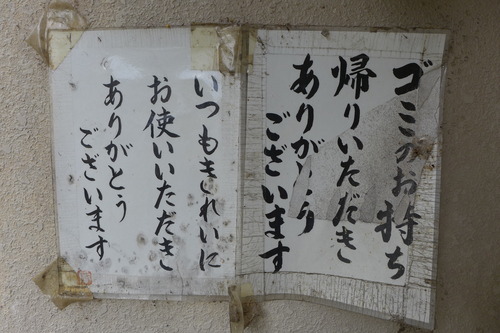 ゴミのお持ち
帰りいただき
ありがとう
ございます
いつもきれいに
お使いいただき
ありがとう
ございます